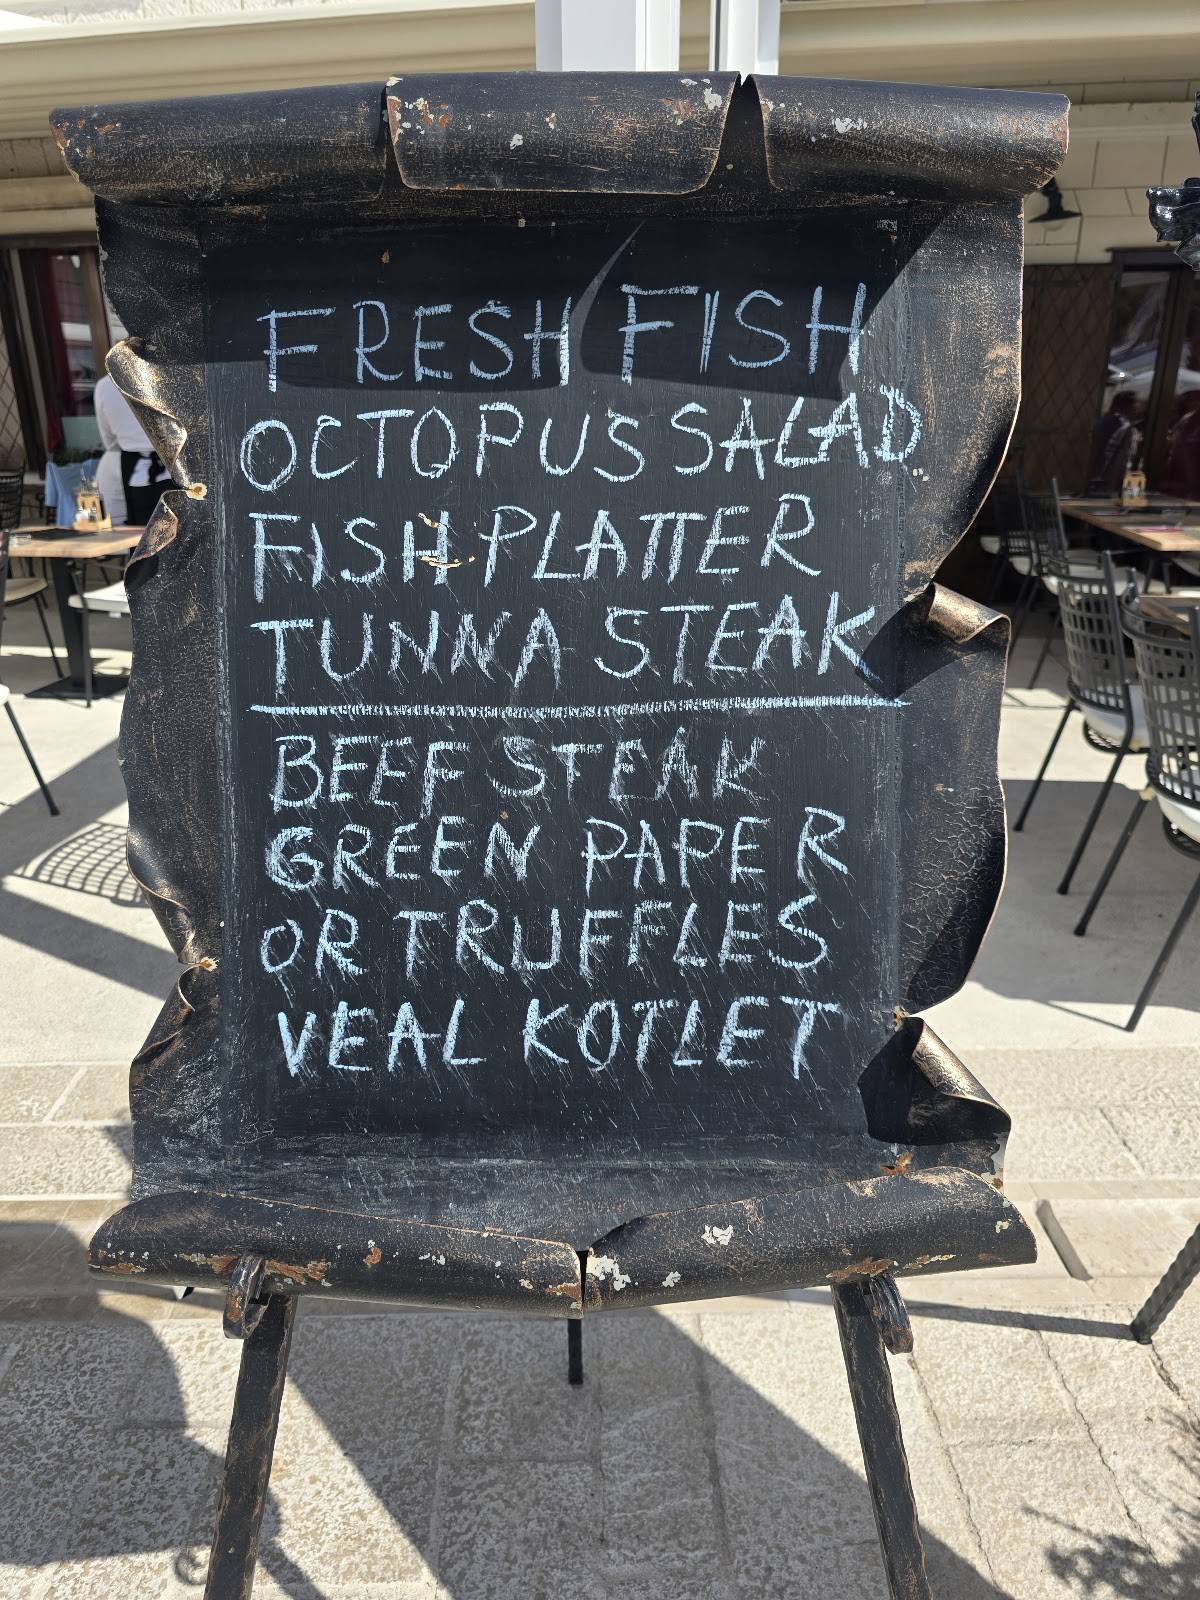 FRESH FISH
OCTOPUS SALAD
FISH PLATTER
TUNNA STEAK
BEEF STEAK
GREEN PAPER
OR TRUFFLES
VEAL KOTLET